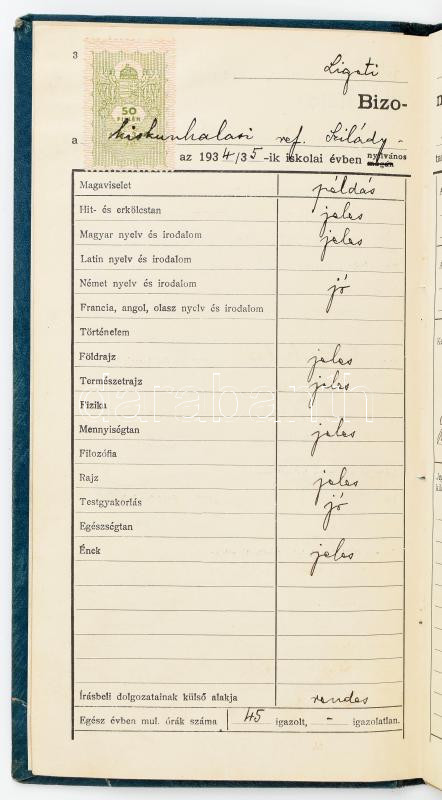 3
Ligeti
50
FILLÉR
Bizo-
a kiskunhalasi ref. Szilády-
az 1934/35-ik iskolai évben nyilvános magán
Magaviselet példás
Hit- és erkölcstan jeles
Magyar nyelv és irodalom jeles
Latin nyelv és irodalom
Német nyelv és irodalom jó
Francia, angol, olasz nyelv és irodalom
Történelem
Földrajz jeles
Természetrajz jeles
Fizika
Mennyiségtan jeles
Filozófia
Rajz jeles
Testgyakorlás jó
Egészségtan
Ének jeles
Írásbeli dolgozatainak külső alakja rendes
Egész évben mul. órák száma 45 igazolt, - igazolatlan.
darabanth